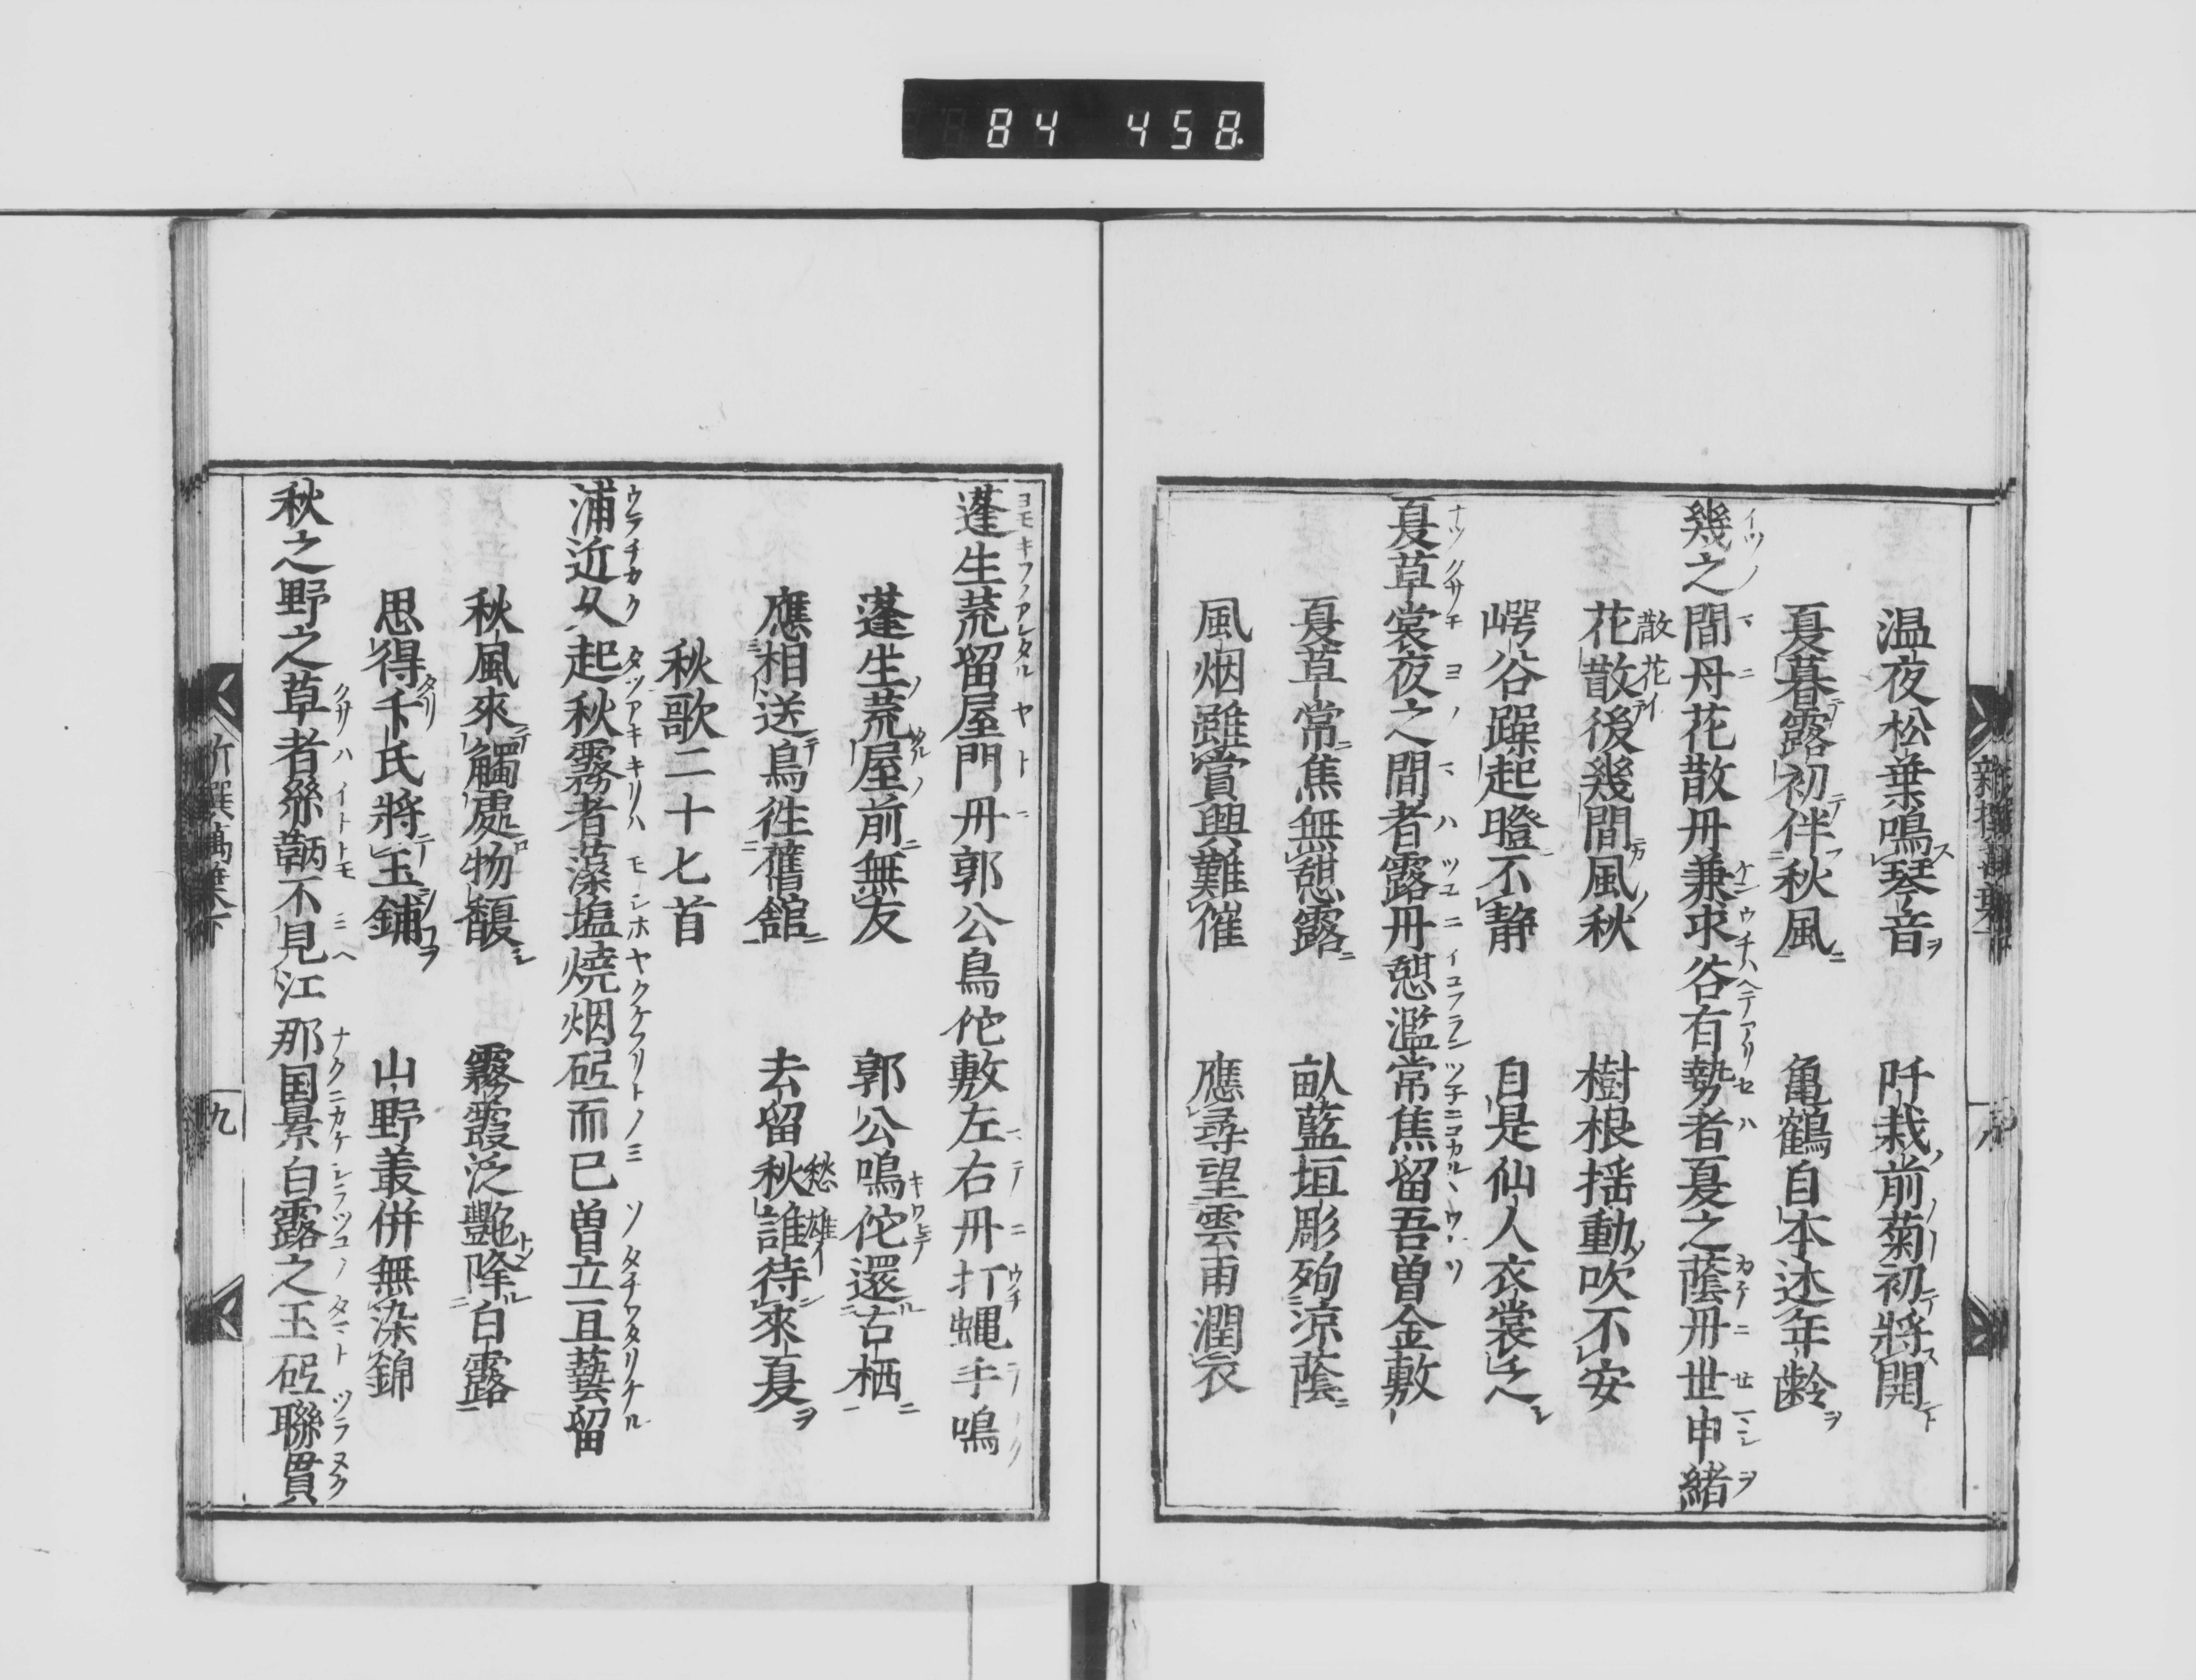 84 458.
温夜松葉鳴琴音 阡栽前菊初將開
夏暮露初伴秋風 亀鶴自本述年齢
幾之間丹花散丹兼求谷有勢者夏之蔭丹世申緒
花散後幾間風秋 樹根揺動吹不安
崿谷躁起瞪不静 自是仙人衣裳乏
夏草裳夜之間者露丹憇濫常焦留吾曽金敷
夏草常焦無憩露 畝藍垣彫殉涼蔭
風烟雖賞興難催 應尋望雲雨潤衣
蓬生荒留屋門丹郭公鳥佗敷左右丹打蝿手鳴
蓬生荒屋前無友 郭公鳴佗還古栖
應相送鳥徃舊舘 去留秋誰待來夏
秋歌二十七首
浦近久起秋霧者藻塩焼烟砥而已曽立亘藝留
秋風來觸處物馥 霧霞泛艷降白露
思得卞氏將玉鋪 山野叢併無染錦
秋之野之草者絲鞆不見江那国景白露之玉砥聯貫
新撰萬葉下
九